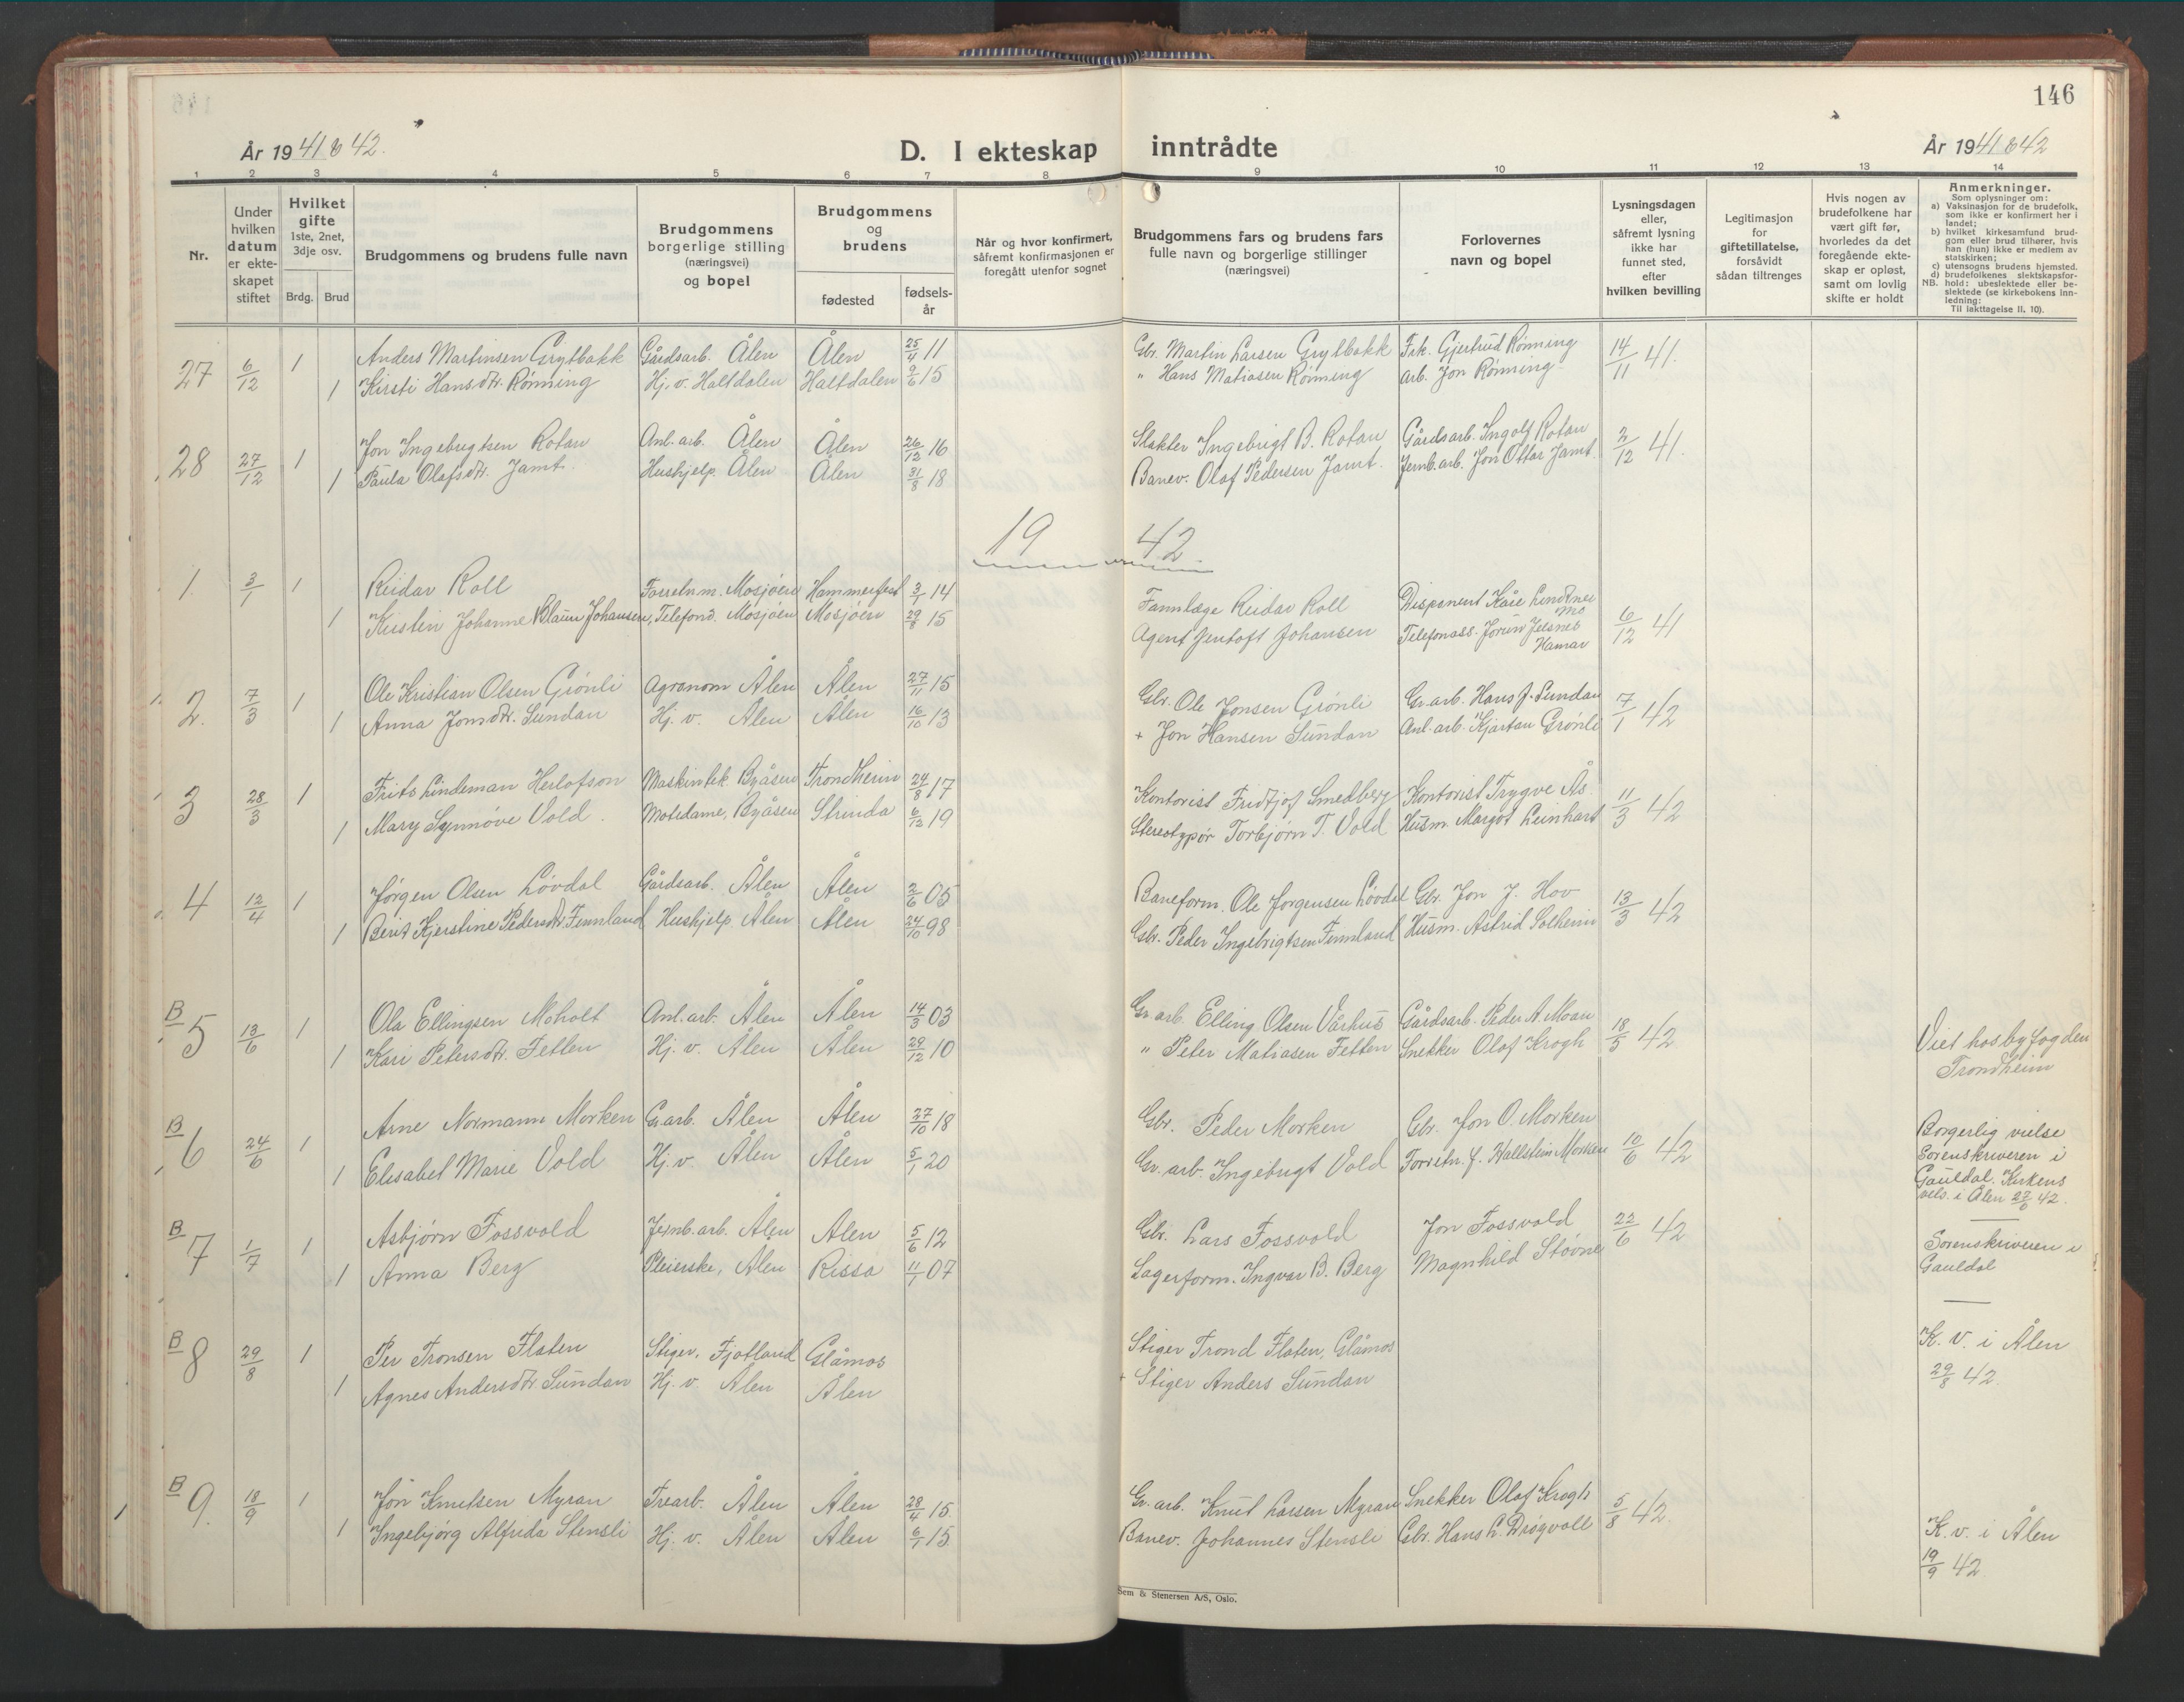 146
År 1941 & 42.
D. I ekteskap inntrådte
År 1941 & 42
1 2 3 4 5 6 7 8 9 10 11 12 13 14
Nr.
Under hvilken datum er ekteskapet stiftet
Hvilket gifte
1ste, 2net, 3dje osv.
Brdg. Brud
Brudgommens og brudens fulle navn
Brudgommens borgerlige stilling (næringsvei) og bopel
Brudgommens og brudens
fødested
fødsels-år
Når og hvor konfirmert, såfremt konfirmasjonen er foregått utenfor sognet
Brudgommens fars og brudens fars fulle navn og borgerlige stillinger (næringsvei)
Forlovernes navn og bopel
Lysningsdagen eller, såfremt lysning ikke har funnet sted, efter hvilken bevilling
Legitimasjon for giftetillatelse, forsåvidt sådan tiltrenges
Hvis nogen av brudefolkene har vært gift før, hvorledes da det foregående ekteskap er opløst, samt om lovlig skifte er holdt
Anmerkninger.
Som oplysninger om:
a) Vaksinasjon for de brudefolk, som ikke er konfirmert her i landet;
b) hvilket kirkesamfund brudgom eller brud tilhører, hvis han (hun) ikke er medlem av statskirken;
c) utensogns brudens hjemsted.
d) brudefolkenes slektskapsforhold: ubeslektede eller beslektede (se kirkebokens innledning:
NB.
Til iakttagelse II. 10).
27 6/12 1 Anders Martinsen Grytbakk Gårdsarb. Ålen Ålen 25/4 11 Gbr. Martin Larsen Grytbakk Frk. Gjertrud Rønning 14/11 41.
1 Kirsti Hansdtr. Rønning Hj. v. Haltdalen Haltdalen 9/6 15 " Hans Matiasen Rønning Arb. Jon Rønning
28 27/12 1 Jon Ingebrigtsen Rotan Anl. arb. Ålen Ålen 26/12 16 Slakter Ingebrigt B. Rotan Gårdsarb. Ingolf Rotan 2/12 41.
1 Paula Olafsdtr. Jamt. Hushjelp. Ålen Ålen 31/8 18 Banev. Olaf Pedersen Jamt. Jernb.arb. Jon Ottar Jamt
19 42
1. 3/1 1 Reidar Roll Mosjøen Hammerfest 3/1 14 Tannlæge Reidar Roll Disponent Kåre Lindtner Mo 6/12 41
1 Kristin Johanne Blaun Johansen, Telefond. Mosjøen Mosjøen 29/8 15 Agent Jentoft Johansen Telefonass. Jorunn Hamar
2. 7/3 1 Ole Kristian Olsen Grønli Agronom Ålen Ålen 27/11 15 Gbr. Ole Jonsen Grønli Gr.arb. Hans J. Sundan 7/1 42
1 Anna Jonsdtr. Sundan Hj. v. Ålen Ålen 16/10 13 + Jon Hansen Sundan Anl. arb. Kjartan Grønli
3 28/3 1 Frits Lindeman Herlofson Maskintek. Byåsen Trondheim 24/8 17 Kontorist Fridtjof Smedberg Kontorist Trygve Ås 11/3 42
1 Mary Synnøve Vold. Motedame, Byåsen Strinda 6/12 19 Stereotypør Torbjørn T. Vold Husm. Margot Leinhart
4 12/4 1 Jørgen Olsen Løvdal Gårdsarb. Ålen Ålen 2/6 05 Baneform. Ole Jørgensen Løvdal Gbr. Jon J. Hov 13/3 42
1 Berit Kjerstine Pedersdtr. Finnland Hushjelp Ålen Ålen 24/10 98 Gbr. Peder Ingebrigtsen Finnland Husm. Astrid Solheim
B 5 13/6 1 Ola Ellingsen Moholt Anl. arb. Ålen Ålen 14/3 03 Gr. arb. Elling Olsen Vårhus Gårdsarb. Peder A. Moan 18/5 42 Viet hos byfogden
1 Kari Petersdtr. Fetten Hj. v. Ålen Ålen 29/12 10 " Peter Matiasen Fetten Snekker Olaf Krogh Trondheim
B 6 24/6 1 Arne Normann Morken Gr.arb. Ålen Ålen 27/10 18 Gbr. Peder Morken Gbr. Jon O. Morken 10/6 42 Borgerlig vielse
1 Elisabet Marie Vold Hj. v. Ålen Ålen 5/1 20 Gr. arb. Ingebrigt Vold Forretn. f. Hallstein Morken Sorenskriveren i
Gauldal. Kirkens
vels. i Ålen 27/6 42.
B 7 1/7 1 Asbjørn Fossvold Jernb. arb. Ålen Ålen 5/6 12 Gbr. Lars Fossvold Jon Fossvold 22/6 42 Sorenskriveren i
1 Anna Berg Pleierske, Ålen Rissa 11/1 07 Lagerform. Ingvar B. Berg Magnhild Støvne Gauldal
B 8 29/8 1 Per Tronsen Flaten Stiger. Fjotland Glåmos Stiger Trond Flaten, Glåmos K. v. i Ålen
1 Agnes Andersdtr. Sundan Hj. v. Ålen Ålen + Stiger Anders Sundan 29/8 42.
B 9. 18/9 1 Jon Knutsen Myran Trearb. Ålen Ålen 28/4 15. Gr. arb. Knut Larsen Myran Snekker Olaf Krogh 5/8 42.
1 Ingebjørg Alfrida Stensli Hj. v. Ålen Ålen 6/1 15. Banev. Johannes Stensli Gbr. Hans L. Drøgvoll K. v. i Ålen
19/9 42
Sem & Stenersen A/S, Oslo.